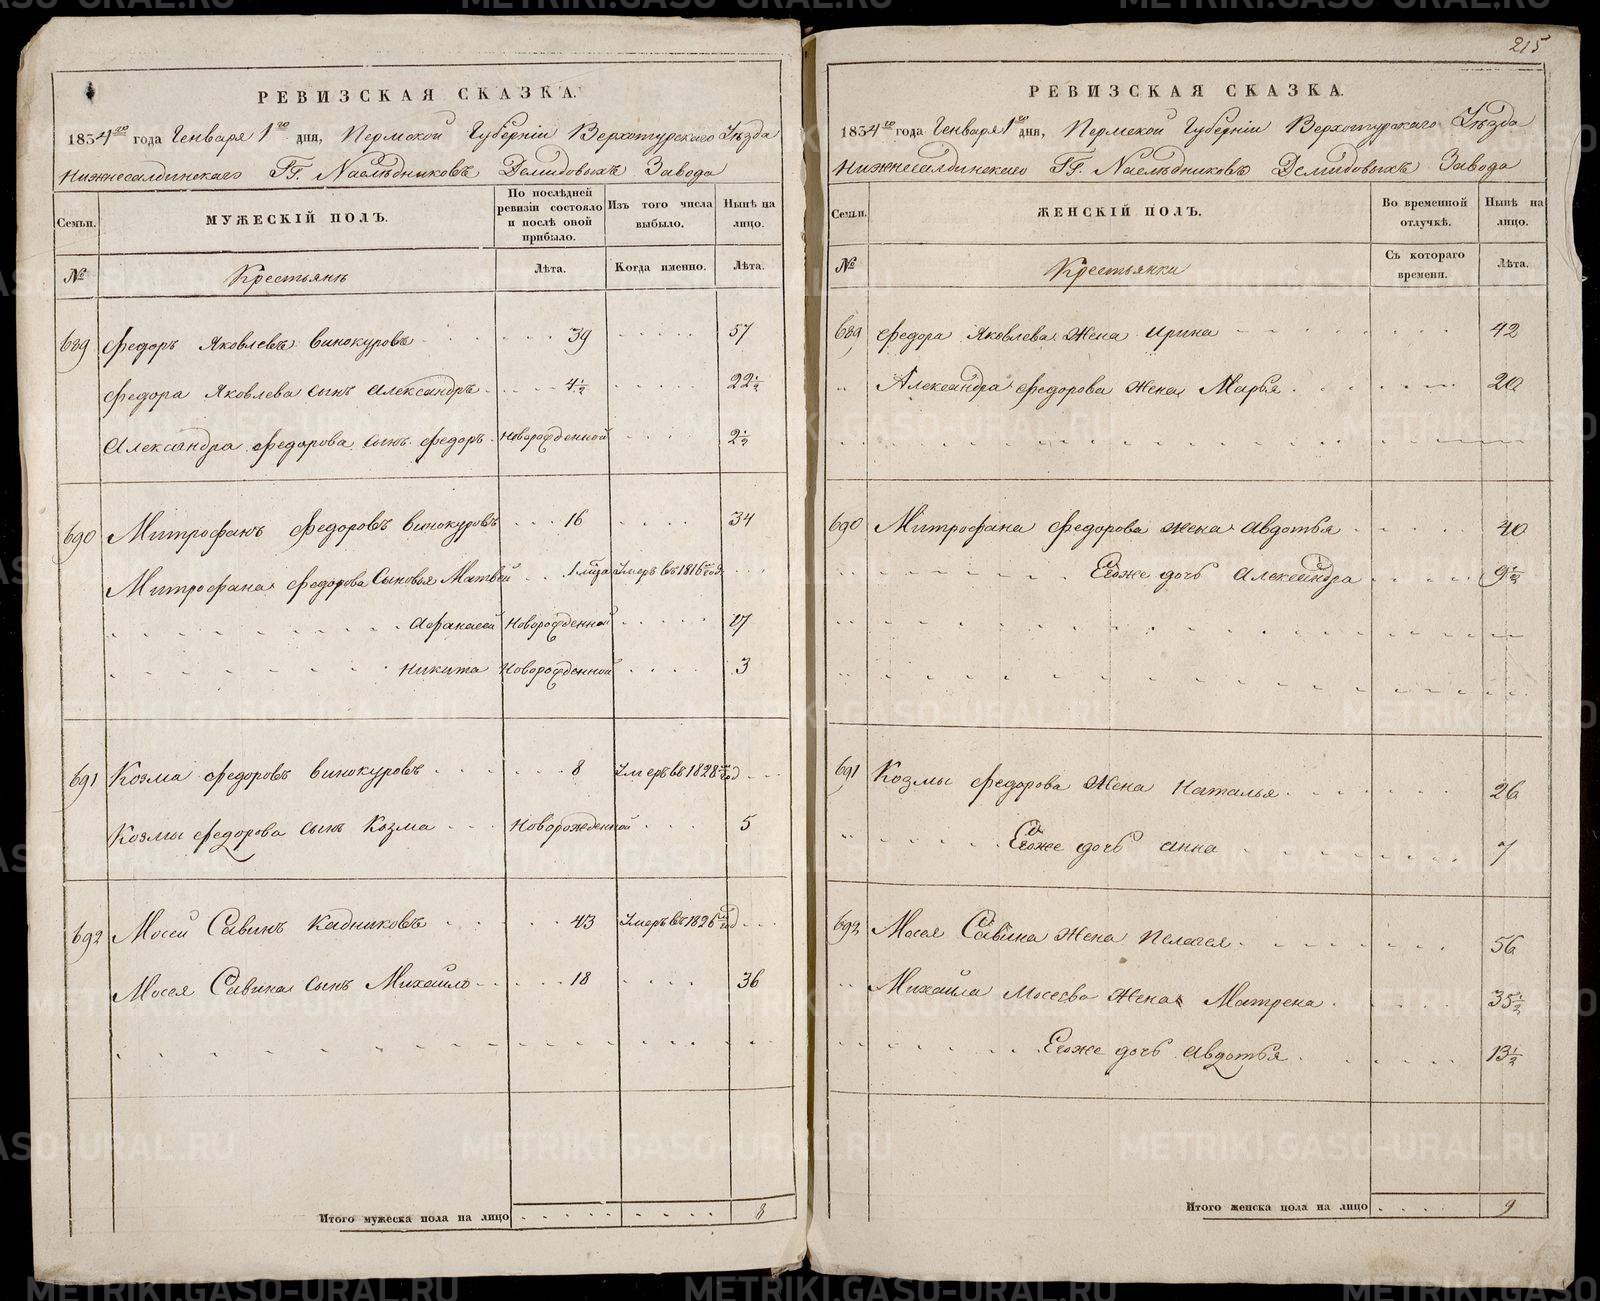 РЕВИЗСКАЯ СКАЗКА.
1834го года Генваря 1го дня, Пермской Губернiи Верхотурскаго Уѣзда
Нижнесалдинскаго ГГ. Наслѣдниковъ Демидовыхъ Завода
Семьи. МУЖЕСКIЙ ПОЛЪ. По послѣдней ревизiи состояло и послѣ оной прибыло. Изъ того числа выбыло. Нынѣ на лицо.
№ Крестьянъ Лѣта. Когда именно. Лѣта.
689 Федоръ Яковлевъ Винокуровъ 39 57
Федора Яковлева сынъ Александръ 4½ 22½
Александра Федорова сынъ Федоръ Новорожденной 2½
690 Митрофанъ Федоровъ Винокуровъ 16 34
Митрофана Федорова Сыновья Матвей Умеръ въ 1816 год.
Афанасей Новорожденной 17
Никита Новорожденной 3
691 Козма Федоровъ Винокуровъ 8 Умеръ въ 1828 год
Козмы Федорова сынъ Козма Новорожденной 5
692 Мосей Савинъ Кадниковъ 43 Умеръ въ 1826 год
Мосея Савина сынъ Михайло 18 36
Итого мужеска пола на лицо 8
215
РЕВИЗСКАЯ СКАЗКА.
1834го года Генваря 1го дня, Пермской Губернiи Верхотурскаго Уѣзда
Нижнесалдинскаго ГГ. Наслѣдниковъ Демидовыхъ Завода
Семьи. ЖЕНСКIЙ ПОЛЪ. Во временной отлучкѣ. Нынѣ на лицо.
№ Крестьянки Съ котораго времени. Лѣта.
689 Федора Яковлева Жена Ирина 42
Александра Федорова Жена Марья 20
690 Митрофана Федорова Жена Авдотья 40
Егоже дочь Александра 9½
691 Козмы Федорова Жена Наталья 26
Егоже дочь Анна 7
692 Мосея Савина Жена Пелагея 56
Михайла Мосеева Жена Матрена 35½
Егоже дочь Авдотья 13½
Итого женска пола на лицо 9
METRIKI.GASO-URAL.RU